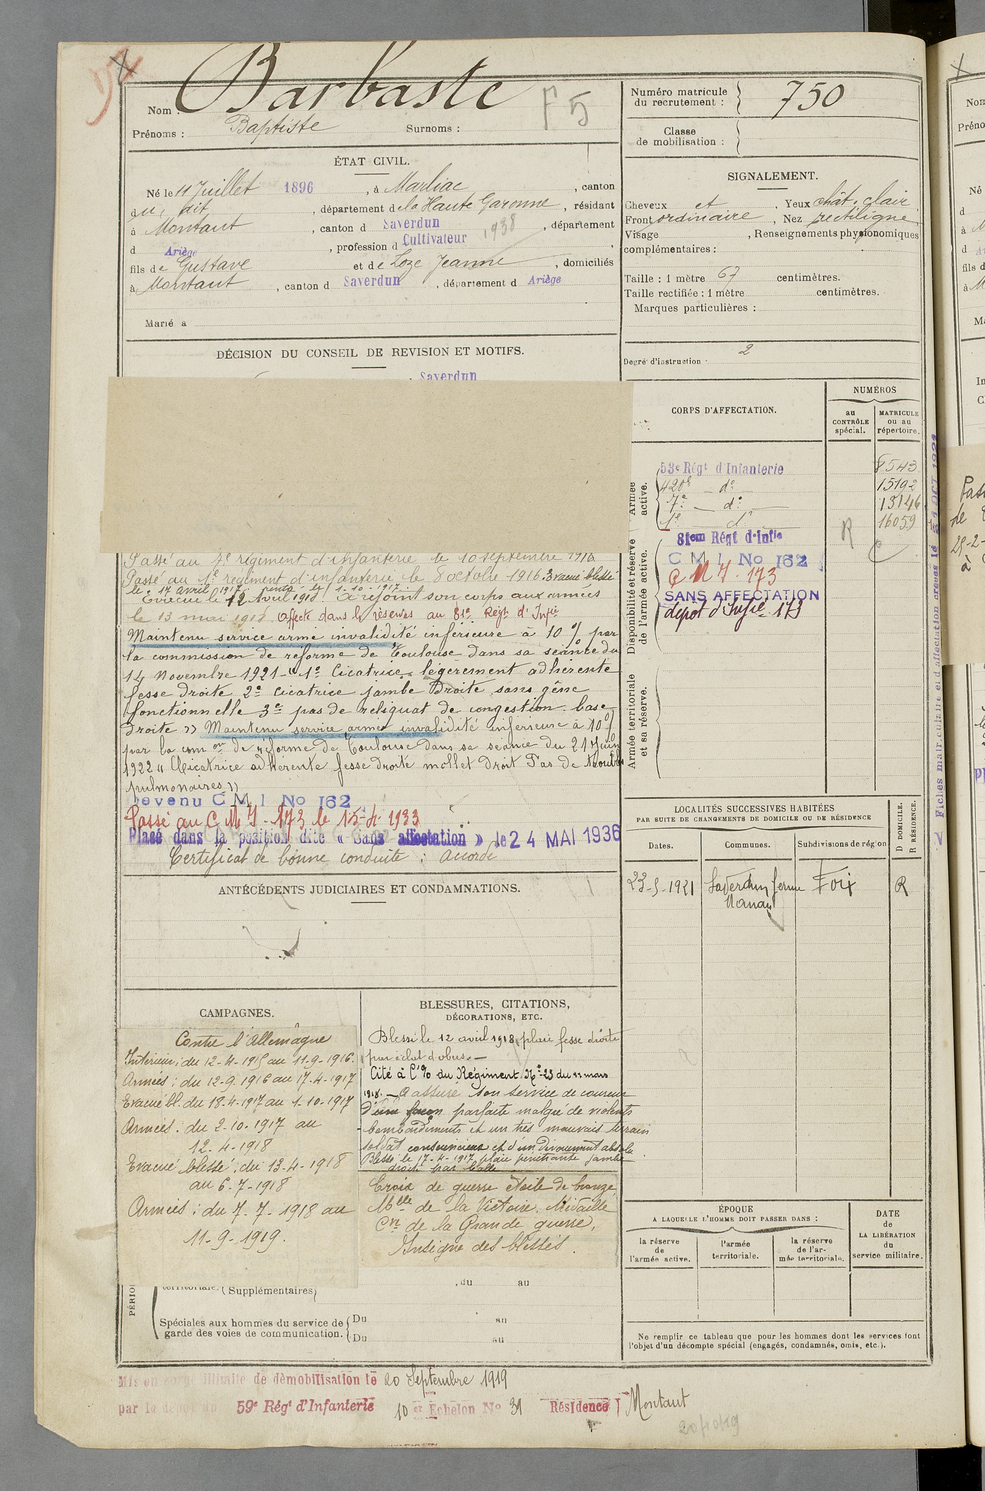 Nom : Barbaste
F 5
Prénoms : Baptiste Surnoms :
Numéro matricule du recrutement : 750
Classe de mobilisation :
ÉTAT CIVIL.
Né le 11 Juillet 1896, à Marliac, canton
du dit, département de la Haute Garonne, résidant
à Montaut, canton d Saverdun, département
d Ariège, profession d Cultivateur 1938
fils de Gustave et de Loze Jeanne, domiciliés
à Montaut, canton d Saverdun, département d Ariège
Marié à
SIGNALEMENT.
Cheveux et, Yeux chât. clair
Front ordinaire, Nez rectiligne
Visage, Renseignements physionomiques
complémentaires :
Taille : 1 mètre 67 centimètres.
Taille rectifiée : 1 mètre centimètres.
Marques particulières :
Degré d'instruction : 2
DÉCISION DU CONSEIL DE REVISION ET MOTIFS.
Saverdun
Passé au 7e régiment d'infanterie le 10 septembre 1916
Passé au 1e régiment d'infanterie le 8 octobre 1916 Evacué blessé
le 17 avril 1917 rentré le 1-10-1917
Evacué le 12 Avril 1918 A rejoint son corps aux armées
le 13 mai 1918. Affecté dans la réserves au 81e Régt d'Infie
Maintenu service armé invalidité inférieuse à 10 % par
la commission de réforme de Toulouse dans sa séance du
14 Novembre 1921 « 1° Cicatrice légèrement adhérente
fesse droite 2° Cicatrice jambe Droite sans gêne
fonctionnelle 3° pas de reliquat de congestion base
droite » Maintenu service armé invalidité inférieure à 10%
par la comon de réforme de Toulouse dans sa séance du 21 Juin
1922 « Cicatrice adhérente fesse droite mollet droit Pas de troubles
pulmonaires »
Devenu C M I No 162
Passé au C M I - 173 le 15-4-1933
Placé dans la position dite « Sans affectation » le 24 MAI 1936
Certificat de bonne conduite : accordé
CORPS D'AFFECTATION.
NUMÉROS
au CONTRÔLE spécial.
MATRICULE ou au répertoire.
Armée active.
53e Régt d'Infanterie 8543
420e - do 15192
7e - do 13146
1e do 16059
R
Disponibilité et réserve de l'armée active.
81em Régt d'Infie
C M I No 162
C M I 173
SANS AFFECTATION
dépôt d'Infie 173
Armée territoriale et sa réserve.
LOCALITÉS SUCCESSIVES HABITÉES
PAR SUITE DE CHANGEMENTS DE DOMICILE OU DE RÉSIDENCE
Dates. Communes. Subdivisions de région
D DOMICILE. R RÉSIDENCE.
23-5-1921 Saverdun ferme Foix R
ANTÉCÉDENTS JUDICIAIRES ET CONDAMNATIONS.
CAMPAGNES.
Contre l'Allemagne
Intérieur ; du 12-4-1915 au 11-9-1916.
Armées : du 12-9-1916 au 17-4-1917
Evacué bl. du 18-4-1917 au 1-10-1917
Armées : du 2-10-1917 au
12-4-1918
Evacué blessé : du 13-4-1918
au 6-7-1918
Armées : du 7-7-1918 au
11-9-1919.
BLESSURES, CITATIONS,
DÉCORATIONS, ETC.
Blessé le 12 avril 1918, plaie fesse droite
par éclat d'obus. -
Cité à l'% du Régiment. No 23 du 11 mars
1918. - A assuré son service de coureur
d'une façon parfaite malgré de violents
bombardements et un très mauvais terrain
soldat consciencieux et d'un dévouement absolu
Blessé le 17-4-1917 plaie pénétrante jambe
droite par balle
Croix de guerre étoile de bronze
Mlle de la Victoire. Médaille
Cve de la Grande guerre,
Insigne des blessés.
territoriale. (Supplémentaires) , du au
Spéciales aux hommes du service de garde des voies de communication.
Du au
Du au
ÉPOQUE
A LAQUELLE L'HOMME DOIT PASSER DANS :
la réserve de l'armée active.
l'armée territoriale.
la réserve de l'armée territoriale.
DATE de LA LIBÉRATION du service militaire.
Ne remplir ce tableau que pour les hommes dont les services font
l'objet d'un décompte spécial (engagés, condamnés, omis, etc.).
Mis en congé illimité de démobilisation le 20 Septembre 1919
par le dépôt du 59e Régt d'Infanterie 10 e Echelon No 31 Résidence Montaut
20/10/19